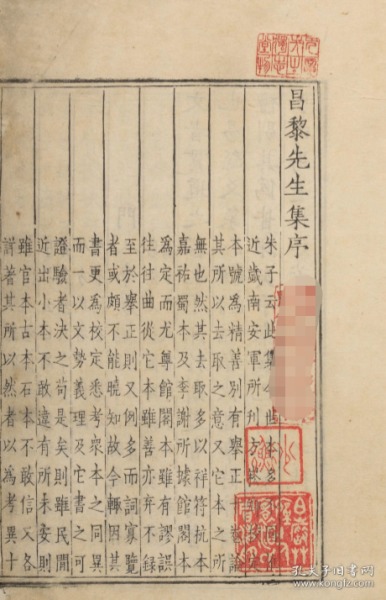 昌黎先生集序
朱子云此集今世本多不同惟
近歲南安軍所刊方氏校定
本號為精善別有舉正十卷論
其所以去取之意又它本之所
無也然其去取多以祥符杭本
嘉祐蜀本及李謝所據館閣本
為定而尤尊館閣本雖有謬誤
往往曲從它本雖善亦棄不録
至於舉正則又例多而詞寡覽
者或頗不能曉知故今輒因其
書更為校定悉考衆本之同異
而一以文勢義理及它書之可
證驗者決之苟是矣則雖民間
近出小本不敢違有所未安則
雖官本古本石本不敢信又各
詳著其所以然者以為考異十
孔夫子旧书网